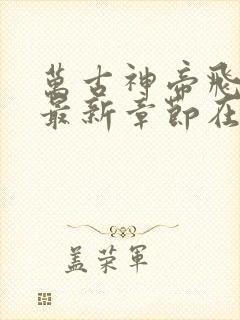 萬古神帝飛
最新章節在
盖荣軍